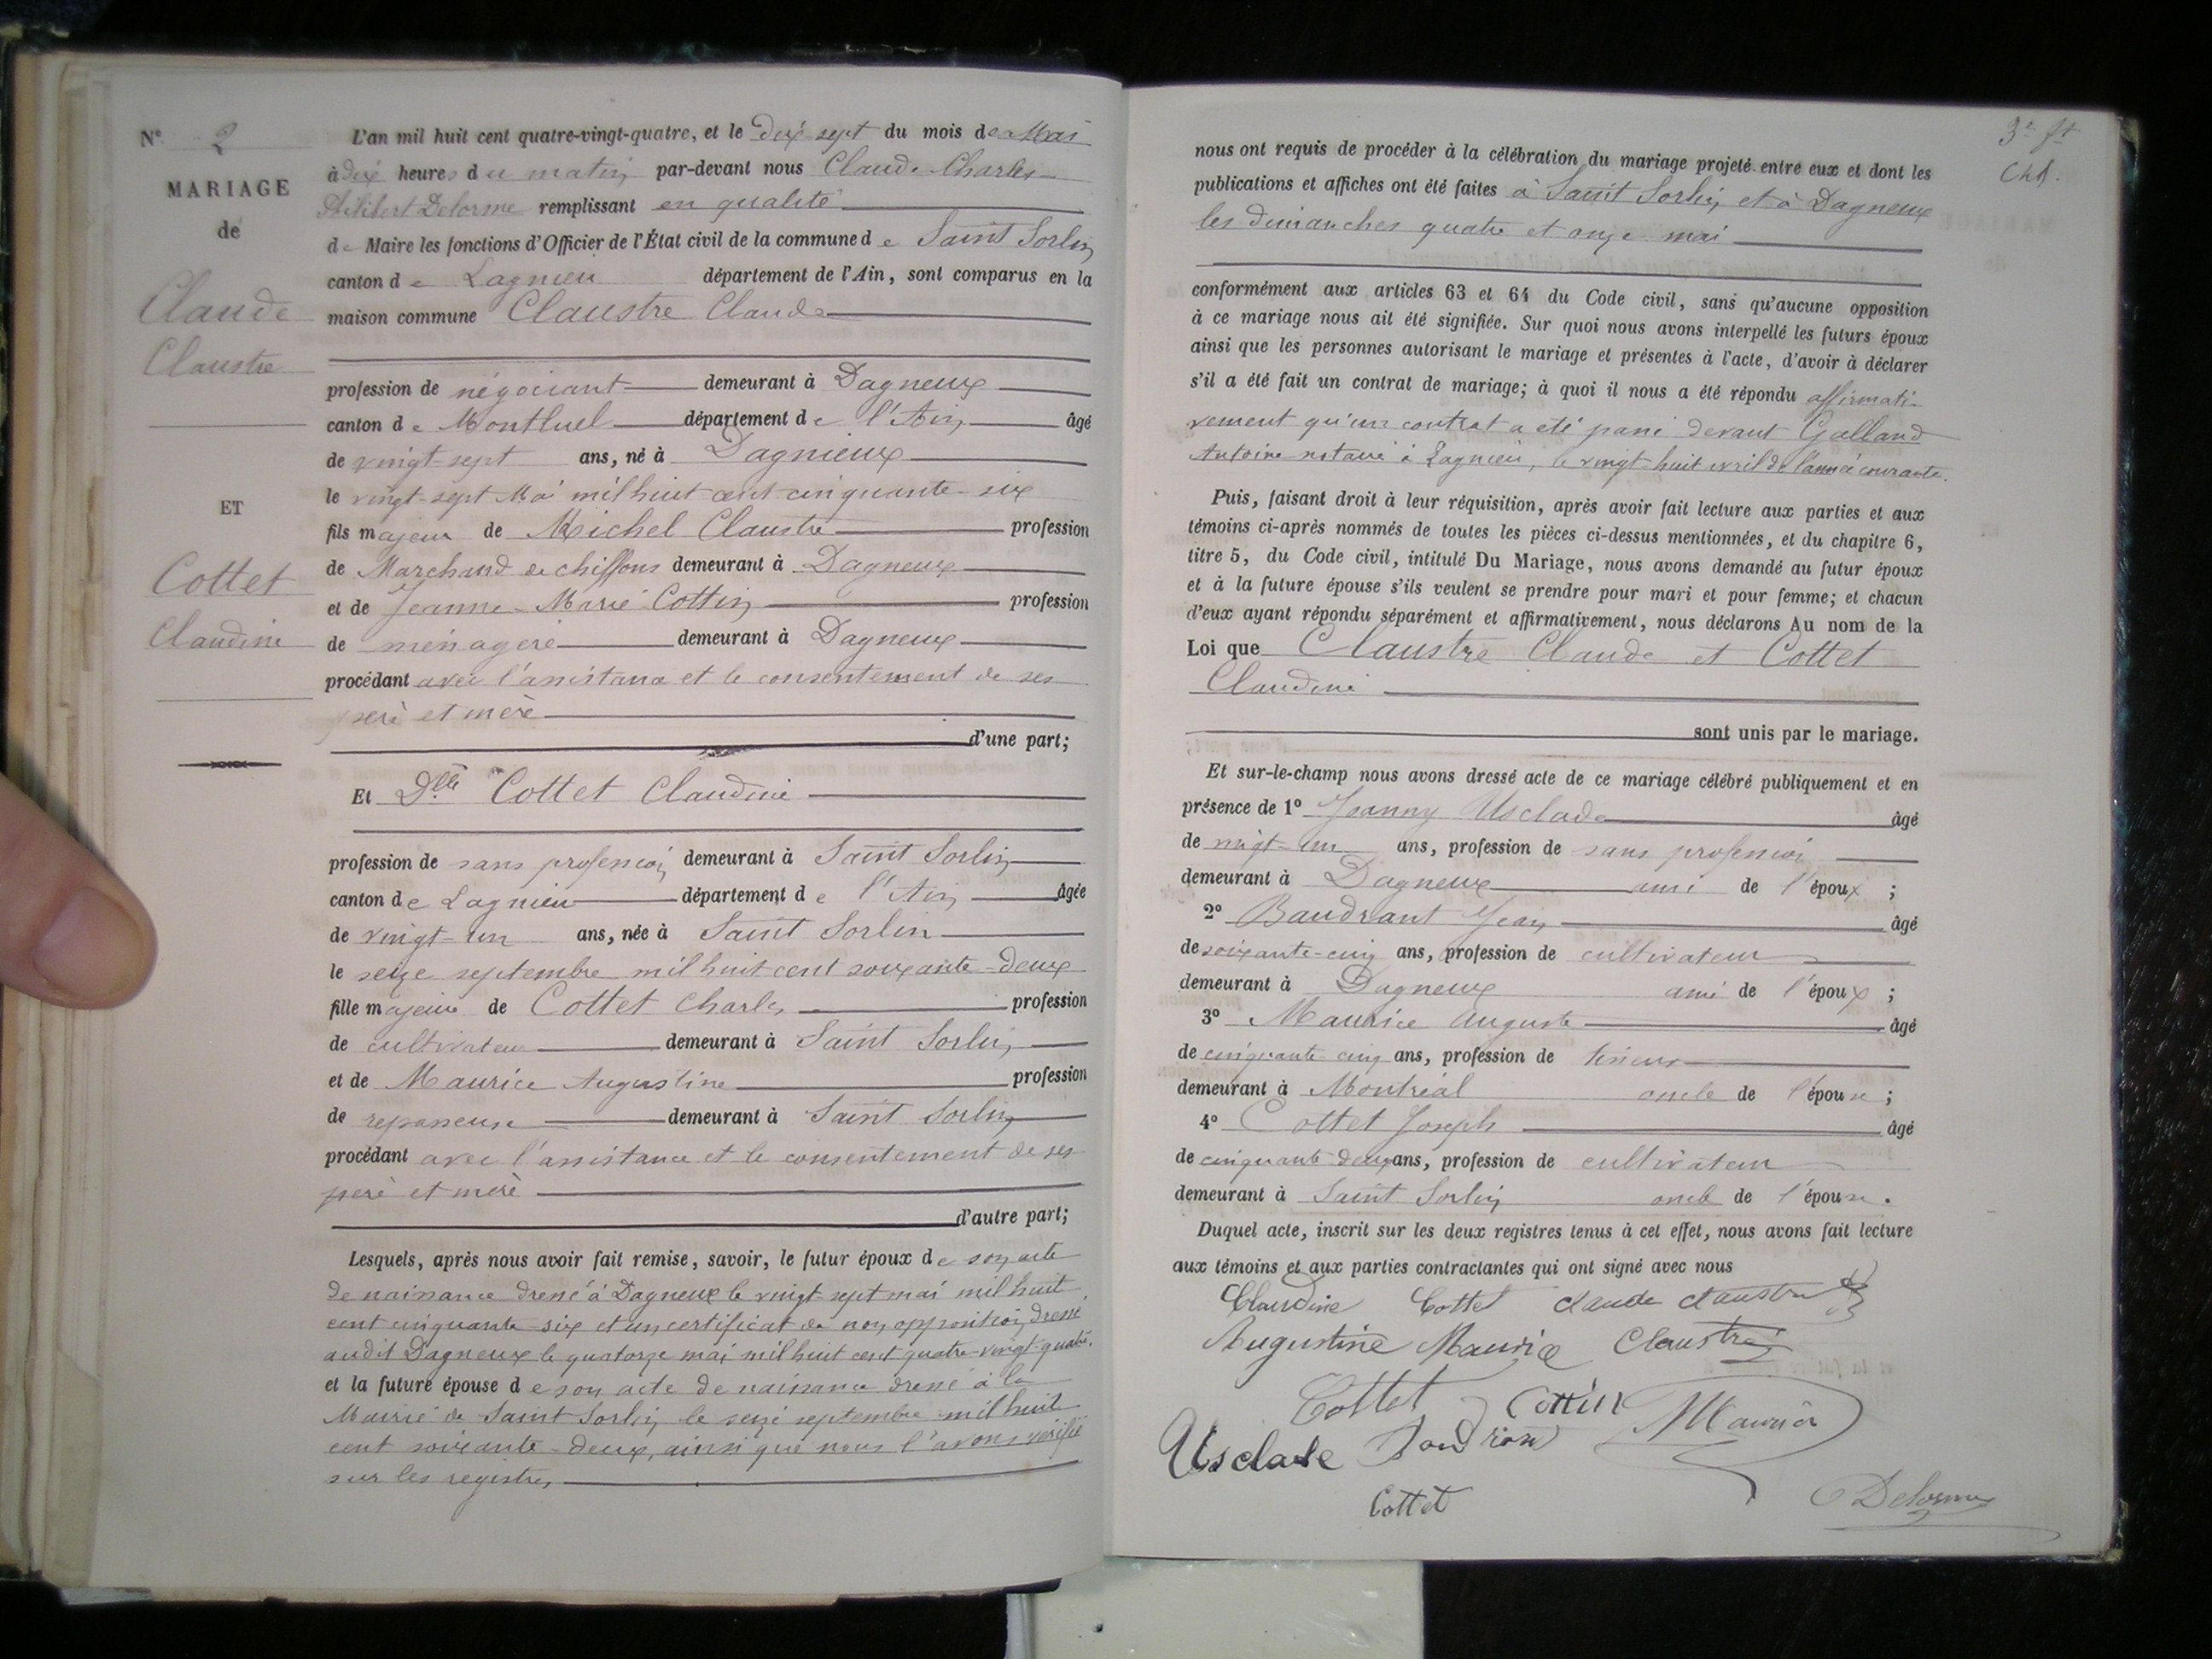 N° 2
MARIAGE
de
Claude
Claustre
ET
Cottet
Claudine
L'an mil huit cent quatre-vingt-quatre, et le dix sept du mois de Mai
à dix heures du matin par-devant nous Claude Charles
Philibert Delorme remplissant en qualité
de Maire les fonctions d'Officier de l'État civil de la commune de Saint Sorlin
canton de Lagnieu département de l'Ain, sont comparus en la
maison commune Claustre Claude
profession de négociant demeurant à Dagneux
canton de Montluel département de l'Ain âgé
de vingt-sept ans, né à Dagnieux
le vingt-sept Mai mil huit cent cinquante-six
fils majeur de Michel Claustre profession
de Marchand de chiffons demeurant à Dagneux
et de Jeanne-Marie Cottin profession
de ménagère demeurant à Dagneux
procédant avec l'assistance et le consentement de ses
père et mère
d'une part;
Et Dlle Cottet Claudine
profession de sans profession demeurant à Saint Sorlin
canton de Lagnieu département de l'Ain âgée
de vingt-un ans, née à Saint Sorlin
le seize septembre mil huit cent soixante-deux
fille majeure de Cottet Charles profession
de cultivateur demeurant à Saint Sorlin
et de Maurice Augustine profession
de repasseuse demeurant à Saint Sorlin
procédant avec l'assistance et le consentement de ses
père et mère
d'autre part;
Lesquels, après nous avoir fait remise, savoir, le futur époux de son acte
de naissance dressé à Dagneux le vingt-sept mai mil huit
cent cinquante-six et un certificat de non opposition dressé
audit Dagneux le quatorze mai mil huit cent quatre-vingt-quatre.
et la future épouse de son acte de naissance dressé à la
Mairie de Saint Sorlin le seize septembre mil huit
cent soixante-deux, ainsi que nous l'avons vérifié
sur les registres
3e ft
Chd.
nous ont requis de procéder à la célébration du mariage projeté entre eux et dont les
publications et affiches ont été faites à Saint Sorlin et à Dagneux
les dimanches quatre et onze mai
conformément aux articles 63 et 64 du Code civil, sans qu'aucune opposition
à ce mariage nous ait été signifiée. Sur quoi nous avons interpellé les futurs époux
ainsi que les personnes autorisant le mariage et présentes à l'acte, d'avoir à déclarer
s'il a été fait un contrat de mariage; à quoi il nous a été répondu affirmati-
vement qu'un contrat a été passé devant Galland
Antoine notaire à Lagnieu, le vingt-huit avril de l'année courante.
Puis, faisant droit à leur réquisition, après avoir fait lecture aux parties et aux
témoins ci-après nommés de toutes les pièces ci-dessus mentionnées, et du chapitre 6,
titre 5, du Code civil, intitulé Du Mariage, nous avons demandé au futur époux
et à la future épouse s'ils veulent se prendre pour mari et pour femme; et chacun
d'eux ayant répondu séparément et affirmativement, nous déclarons Au nom de la
Loi que Claustre Claude et Cottet
Claudine
sont unis par le mariage.
Et sur-le-champ nous avons dressé acte de ce mariage célébré publiquement et en
présence de 1° Joanny Usclade âgé
de vingt-un ans, profession de sans profession
demeurant à Dagneux ami de l'époux ;
2° Baudrant Jean âgé
de soixante-cinq ans, profession de cultivateur
demeurant à Dagneux ami de l'époux ;
3° Maurice Auguste âgé
de cinquante cinq ans, profession de tisseur
demeurant à Montréal oncle de l'épouse ;
4° Cottet Joseph âgé
de cinquante-deux ans, profession de cultivateur
demeurant à Saint Sorlin oncle de l'épouse.
Duquel acte, inscrit sur les deux registres tenus à cet effet, nous avons fait lecture
aux témoins et aux parties contractantes qui ont signé avec nous
Claudine Cottet Claude Claustre
Augustine Maurice Claustre
Cottet Cottin Maurice
Usclade
Cottet
C Delorme